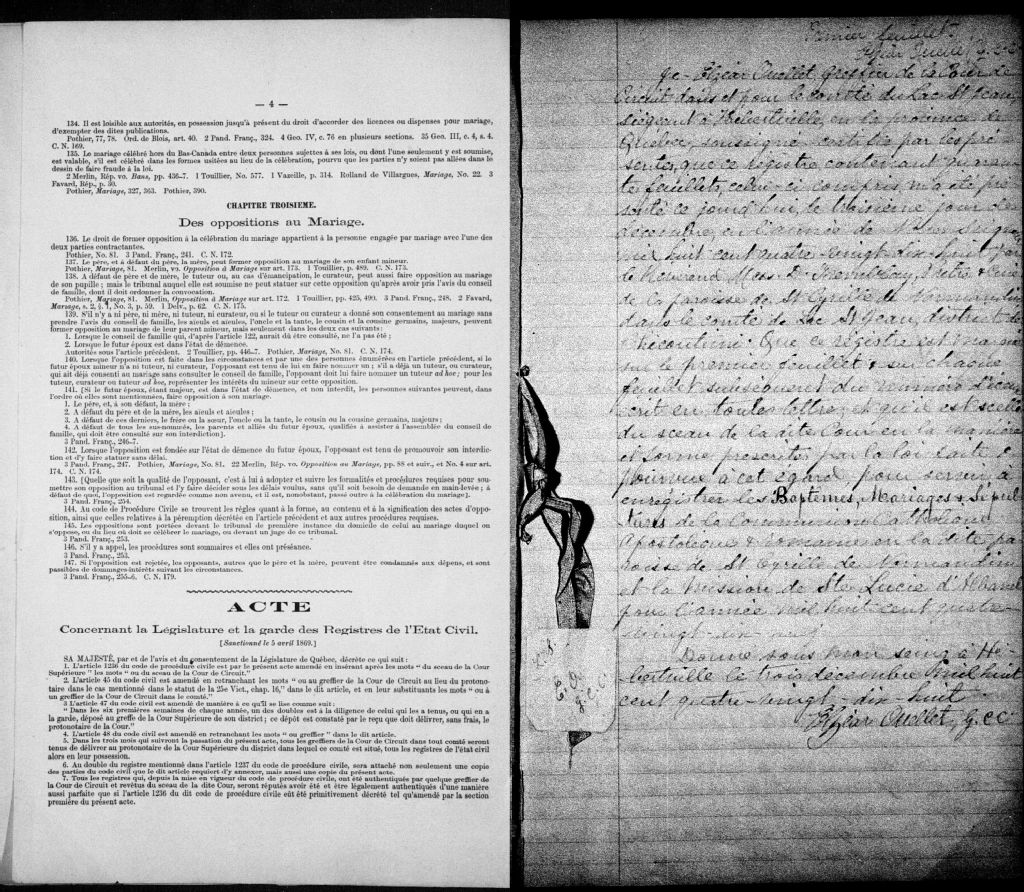 — 4 —
134. Il est loisible aux autorités, en possession jusqu'à présent du droit d'accorder des licences ou dispenses pour mariage,
d'exempter des dites publications.
Pothier, 77, 78. Ord. de Blois, art. 40. 2 Pand. Franç., 324. 4 Geo. IV, c. 76 en plusieurs sections. 35 Geo. III, c. 4, s. 4.
C. N. 169.
135. Le mariage célébré hors du Bas-Canada entre deux personnes sujettes à ses lois, ou dont l'une seulement y est soumise,
est valable, s'il est célébré dans les formes usitées au lieu de la célébration, pourvu que les parties n'y soient pas allées dans le
dessin de faire fraude à la loi.
2 Merlin, Rép. vo. Bans, pp. 436-7. 1 Touillier, No. 577. 1 Vazeille, p. 314. Rolland de Villargues, Mariage, No. 22. 3
Favard, Rép., p. 30.
Pothier, Mariage, 327, 363. Pothier, 390.
CHAPITRE TROISIEME.
Des oppositions au Mariage.
136. Le droit de former opposition à la célébration du mariage appartient à la personne engagée par mariage avec l'une des
deux parties contractantes.
Pothier, No. 81. 3 Pand. Franç., 241. C. N. 172.
137. Le père, et à défaut du père, la mère, peut former opposition au mariage de son enfant mineur.
Pothier, Mariage, 81. Merlin, vo. Opposition à Mariage sur art. 173. 1 Touillier, p. 489. C. N. 173.
138. A défaut de père et de mère, le tuteur ou, au cas d'émancipation, le curateur, peut aussi faire opposition au mariage
de son pupille; mais le tribunal auquel elle est soumise ne peut statuer sur cette opposition qu'après avoir pris l'avis du conseil
de famille, dont il doit ordonner la convocation.
Pothier, Mariage, 81. Merlin, Opposition à Mariage sur art. 172. 1 Touillier, pp. 425, 490. 3 Pand. Franç., 248. 2 Favard,
Mariage, s. 2, § 1, No. 3, p. 59. 1 Delv., p. 62. C. N. 175.
139. S'il n'y a ni père, ni mère, ni tuteur, ni curateur, ou si le tuteur ou curateur a donné son consentement au mariage sans
prendre l'avis du conseil de famille, les aieuls et aieules, l'oncle et la tante, le cousin et la cousine germains, majeurs, peuvent
former opposition au mariage de leur parent mineur, mais seulement dans les deux cas suivants:
1. Lorsque le conseil de famille qui, d'après l'article 122, aurait dû être consulté, ne l'a pas été;
2. Lorsque le futur époux est dans l'état de démence.
Autorités sous l'article précédent. 2 Touillier, pp. 446-7. Pothier, Mariage, No. 81. C. N. 174.
140. Lorsque l'opposition est faite dans les circonstances et par une des personnes énumérées en l'article précédent, si le
futur époux mineur n'a ni tuteur, ni curateur, l'opposant est tenu de lui en faire nommer un; s'il a déjà un tuteur, ou curateur,
qui ait déjà consenti au mariage sans consulter le conseil de famille, l'opposant doit lui faire nommer un tuteur ad hoc; pour les
tuteur, curateur ou tuteur ad hoc, représenter les intérêts du mineur sur cette opposition.
141. [Si le futur époux, étant majeur, est dans l'état de démence, et non interdit, les personnes suivantes peuvent, dans
l'ordre où elles sont mentionnées, faire opposition à son mariage.
1. Le père, et, à son défaut, la mère;
2. A défaut du père et de la mère, les aieuls et aieules;
3. A défaut de ces derniers, le frère ou la sœur, l'oncle ou la tante, le cousin ou la cousine germains, majeurs;
4. A défaut de tous les sus-nommés, les parents et alliés du futur époux, qualifiés à assister à l'assemblée du conseil de
famille, qui doit être consulté sur son interdiction].
3 Pand. Franç., 246-7.
142. Lorsque l'opposition est fondée sur l'état de démence du futur époux, l'opposant est tenu de promouvoir son interdic-
tion et d'y faire statuer sans délai.
3 Pand. Franç., 247. Pothier, Mariage, No. 81. 22 Merlin, Rép. vo. Opposition au Mariage, pp. 88 et suiv., et No. 4 sur art.
174. C. N. 174.
143. [Quelle que soit la qualité de l'opposant, c'est à lui à adopter et suivre les formalités et procédures requises pour sou-
mettre son opposition au tribunal et l'y faire décider sous les délais voulus, sans qu'il soit besoin de demande en main-levée; à
défaut de quoi, l'opposition est regardée comme non avenu, et il est, nonobstant, passé outre à la célébration du mariage].
3 Pand. Franç., 254.
144. Au code de Procédure Civile se trouvent les règles quant à la forme, au contenu et à la signification des actes d'oppo-
sition, ainsi que celles relatives à la péremption décrétée en l'article précédent et aux autres procédures requises.
145. Les oppositions sont portées devant le tribunal de première instance du domicile de celui au mariage duquel on
s'oppose, ou du lieu où doit se célébrer le mariage, ou devant un juge de ce tribunal.
3 Pand. Franç., 253.
146. S'il y a appel, les procédures sont sommaires et elles ont préséance.
3 Pand. Franç., 253.
147. Si l'opposition est rejetée, les opposants, autres que le père et la mère, peuvent être condamnés aux dépens, et sont
passibles de dommages-intérêts suivant les circonstances.
3 Pand. Franç., 255-6. C. N. 179.
ACTE
Concernant la Législature et la garde des Registres de l'Etat Civil.
[Sanctionné le 5 avril 1869.]
SA MAJESTÉ, par et de l'avis et du consentement de la Législature de Québec, décrète ce qui suit:
1. L'article 1236 du code de procédure civile est par le présent acte amendé en insérant après les mots "du sceau de la Cour
Supérieure" les mots "ou du sceau de la Cour de Circuit."
2. L'article 45 du code civil est amendé en retranchant les mots "ou au greffier de la Cour de Circuit au lieu du protono-
taire dans le cas mentionné dans le statut de la 25e Vict., chap. 16," dans le dit article, et en leur substituants les mots "ou à
un greffier de la Cour de Circuit dans le comté."
3 L'article 47 du code civil est amendé de manière à ce qu'il se lise comme suit:
"Dans les six premières semaines de chaque année, un des doubles est à la diligence de celui qui les a tenus, ou qui en a
la garde, déposé au greffe de la Cour Supérieure de son district; ce dépôt est constaté par le reçu que doit délivrer, sans frais, le
protonotaire de la Cour."
4. L'article 48 du code civil est amendé en retranchant les mots "ou greffier" dans le dit article.
5. Dans les trois mois qui suivront la passation du présent acte, tous les greffiers de la Cour de Circuit dans tout comté seront
tenus de délivrer au protonotaire de la Cour Supérieure du district dans lequel ce comté est situé, tous les registres de l'état civil
alors en leur possession.
6. Au double du registre mentionné dans l'article 1237 du code de procédure civile, sera attaché non seulement une copie
des parties du code civil que le dit article requiert d'y annexer, mais aussi une copie du présent acte.
7. Tous les registres qui, depuis la mise en vigueur du code de procédure civile, ont été authentiqués par quelque greffier de
la Cour de Circuit et revêtus du sceau de la dite Cour, seront réputés avoir été et être légalement authentiqués d'une manière
aussi parfaite que si l'article 1236 du dit code de procédure civile eût été primitivement décrété tel qu'amendé par la section
première du présent acte.
Premier feuillet.
Elzéar Ouellet g.c.c
Je Elzéar Ouellet Greffier de la Cour de
Circuit dans et pour le comté du Lac St Jean,
siégeant à Hébertville, en la province de
Québec, soussigné certifie par les pré
sentes, que ce registre contenant quaran
te feuillets, celui-ci compris, m'a été pré
senté ce jourd'hui, le troisième jour de
décembre, en l'année de Notre Seigneur
mil huit cent quatre vingt dix-huit, par
le Révérend Mess. D. Tremblay Prêtre & Curé
de la paroisse de St Cyrille de Normandin
dans le comté de Lac St Jean, district de
Chicoutimi. Que ce registre est marqué
sur le premier feuillet & sur chaque
feuillet subséquent du numéro d'icelui
écrit en toutes lettres, et qu'il est scellé
du sceau de la dite cour en la manière
et forme prescrites par la loi faite et
pourvue à cet égard, pour servir à
enregistrer les Baptêmes, Mariages & Sépul
tures de la Communion Catholique
Apostolique & Romaine en la dite pa
roisse de St Cyrille de Normandin
et la mission de Ste Lucie d'Albanel
pour l'année mil huit cent quatre
vingt-dix-neuf
Donné sous mon seing à Hé
bertville le trois décembre mil huit
cent quatre-vingt dix huit
Elzéar Ouellet, g.c.c